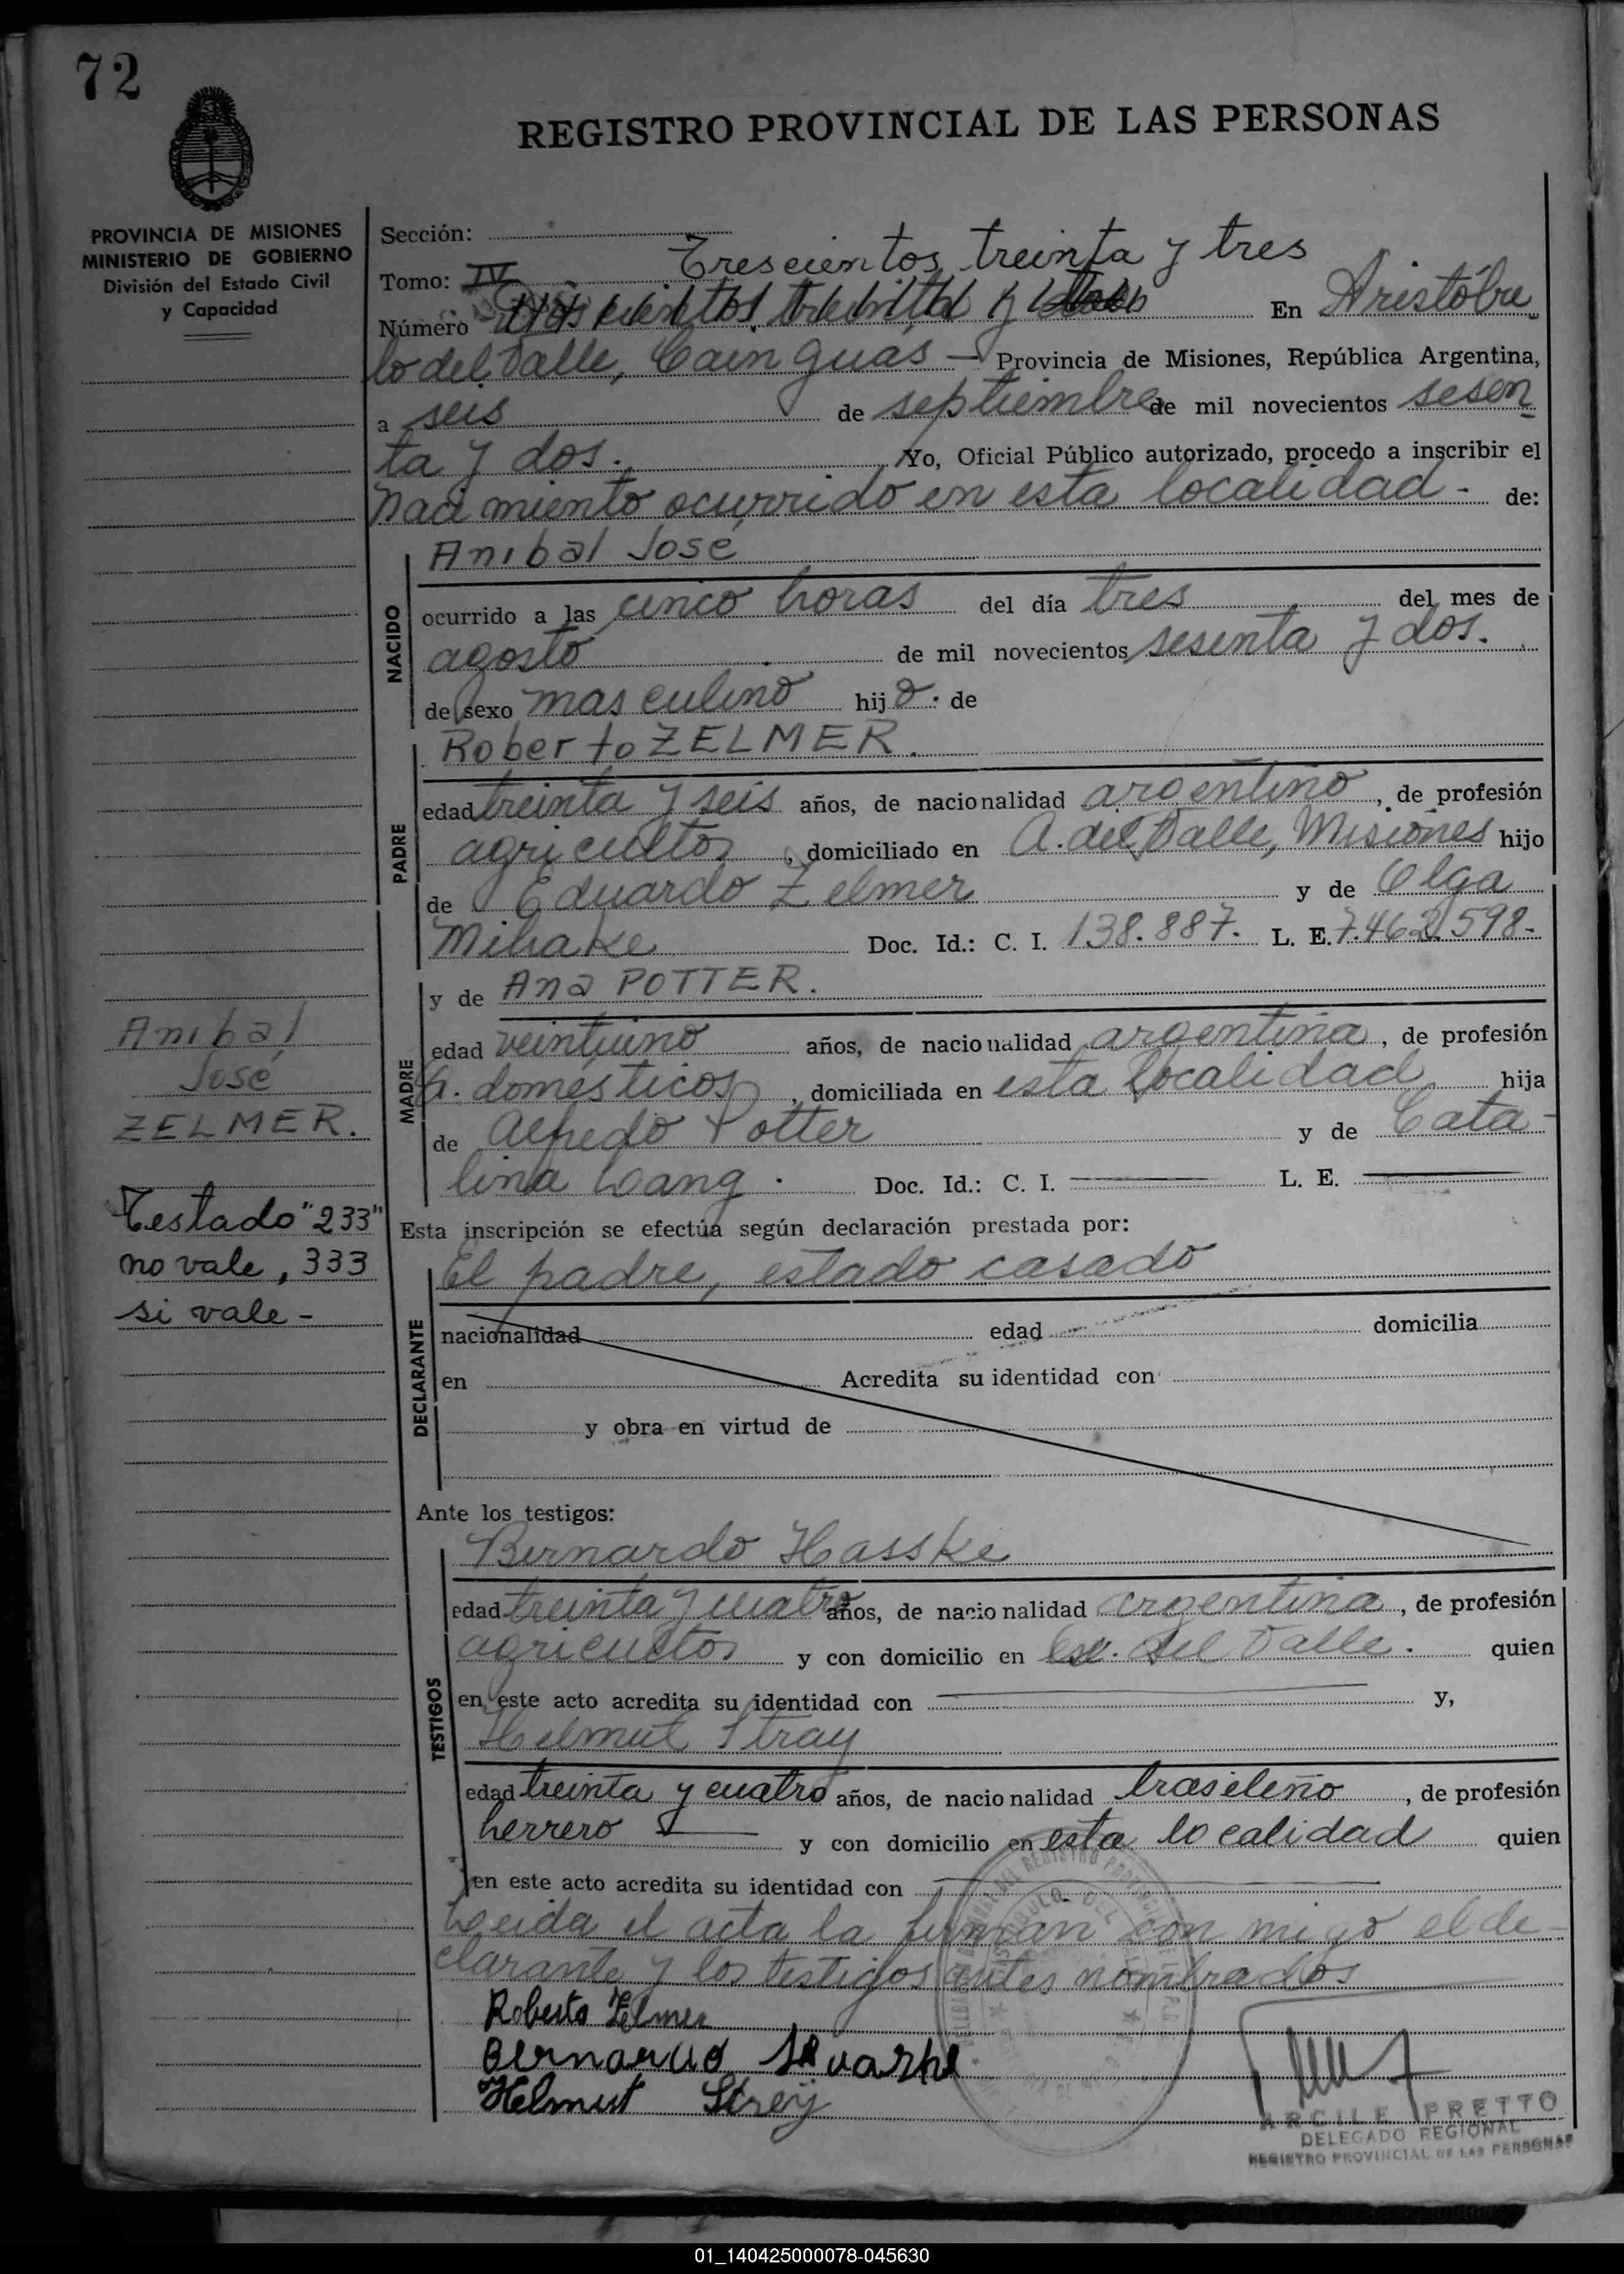 72
REGISTRO PROVINCIAL DE LAS PERSONAS
PROVINCIA DE MISIONES
MINISTERIO DE GOBIERNO
División del Estado Civil
y Capacidad
Sección:
Trescientos treinta y tres
Tomo: IV
Número Doscientos treinta y tres En Aristóbu
lo del Valle, Cainguás - Provincia de Misiones, República Argentina,
a seis de septiembre de mil novecientos sesen
ta y dos. Yo, Oficial Público autorizado, procedo a inscribir el
Nacimiento ocurrido en esta localidad - de:
NACIDO
Anibal José
ocurrido a las cinco horas del día tres del mes de
agosto de mil novecientos sesenta y dos.
de sexo masculino hijo. de
PADRE
Roberto ZELMER.
edad treinta y seis años, de nacionalidad argentino, de profesión
agricultor, domiciliado en A. del Valle, Misiones hijo
de Eduardo Zelmer y de Olga
Milake Doc. Id.: C. I. 138.887. L. E. 7.462.598-
MADRE
y de Ana POTTER.
edad veintiuno años, de nacionalidad argentina, de profesión
q. domésticos, domiciliada en esta localidad hija
de Alfredo Potter y de Cata-
lina Lang. Doc. Id.: C. I. L. E.
Anibal
José
ZELMER.
Testado "233"
no vale, 333
si vale -
Esta inscripción se efectúa según declaración prestada por:
DECLARANTE
El padre, estado casado
nacionalidad edad domicilia
en Acredita su identidad con
y obra en virtud de
Ante los testigos:
TESTIGOS
Bernardo Hasske
edad treinta y cuatro años, de nacionalidad argentina, de profesión
agricultor y con domicilio en del Valle. quien
en este acto acredita su identidad con y,
Helmut Stray
edad treinta y cuatro años, de nacionalidad brasileño, de profesión
herrero y con domicilio en esta localidad quien
en este acto acredita su identidad con
Leida el acta la firman con migo el de-
clarante y los testigos antes nombrados
Roberto Zelmer
Bernardo
Helmut Strey
ARCILE PRETTO
DELEGADO REGIONAL
REGISTRO PROVINCIAL DE LAS PERSONAS
01_140425000078-045630